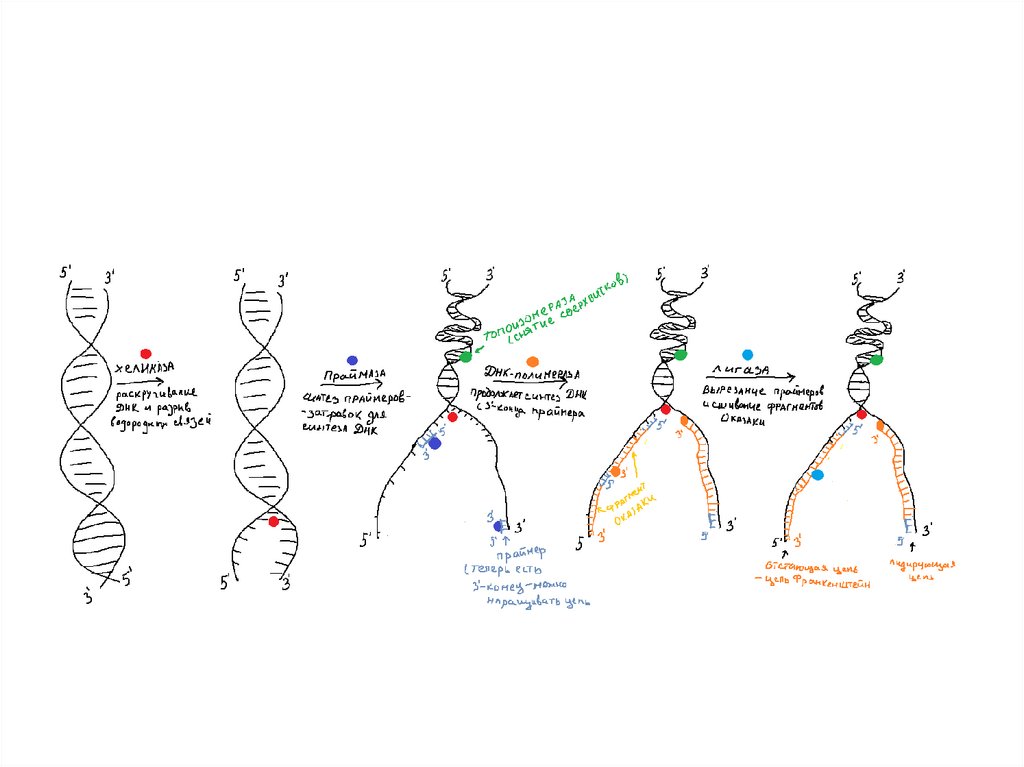 5' 3'
хеликаза
раскручивание
ДНК и разрыв
водородных связей
3' 5'
5' 3'
5' 3'
Праймаза
синтез праймеров-
-затравок для
синтеза ДНК
5' 3'
топоизомераза
(снятие сверхвитков)
5'
3'
5'
3'
5'
3'
праймер
(теперь есть
3'-конец-можно
наращивать цепь
ДНК-полимераза
продолжает синтез ДНК
с 3'-конца праймера
5' 3'
5'
3'
3'
5'
фрагмент
Оказаки
5' 3'
5'
3'
лигаза
вырезание праймеров
и сшивание фрагментов
Оказаки
5' 3'
5'
3'
5' 3'
5'
3'
отстающая цепь
-цепь Франкенштейн
лидирующая
цепь